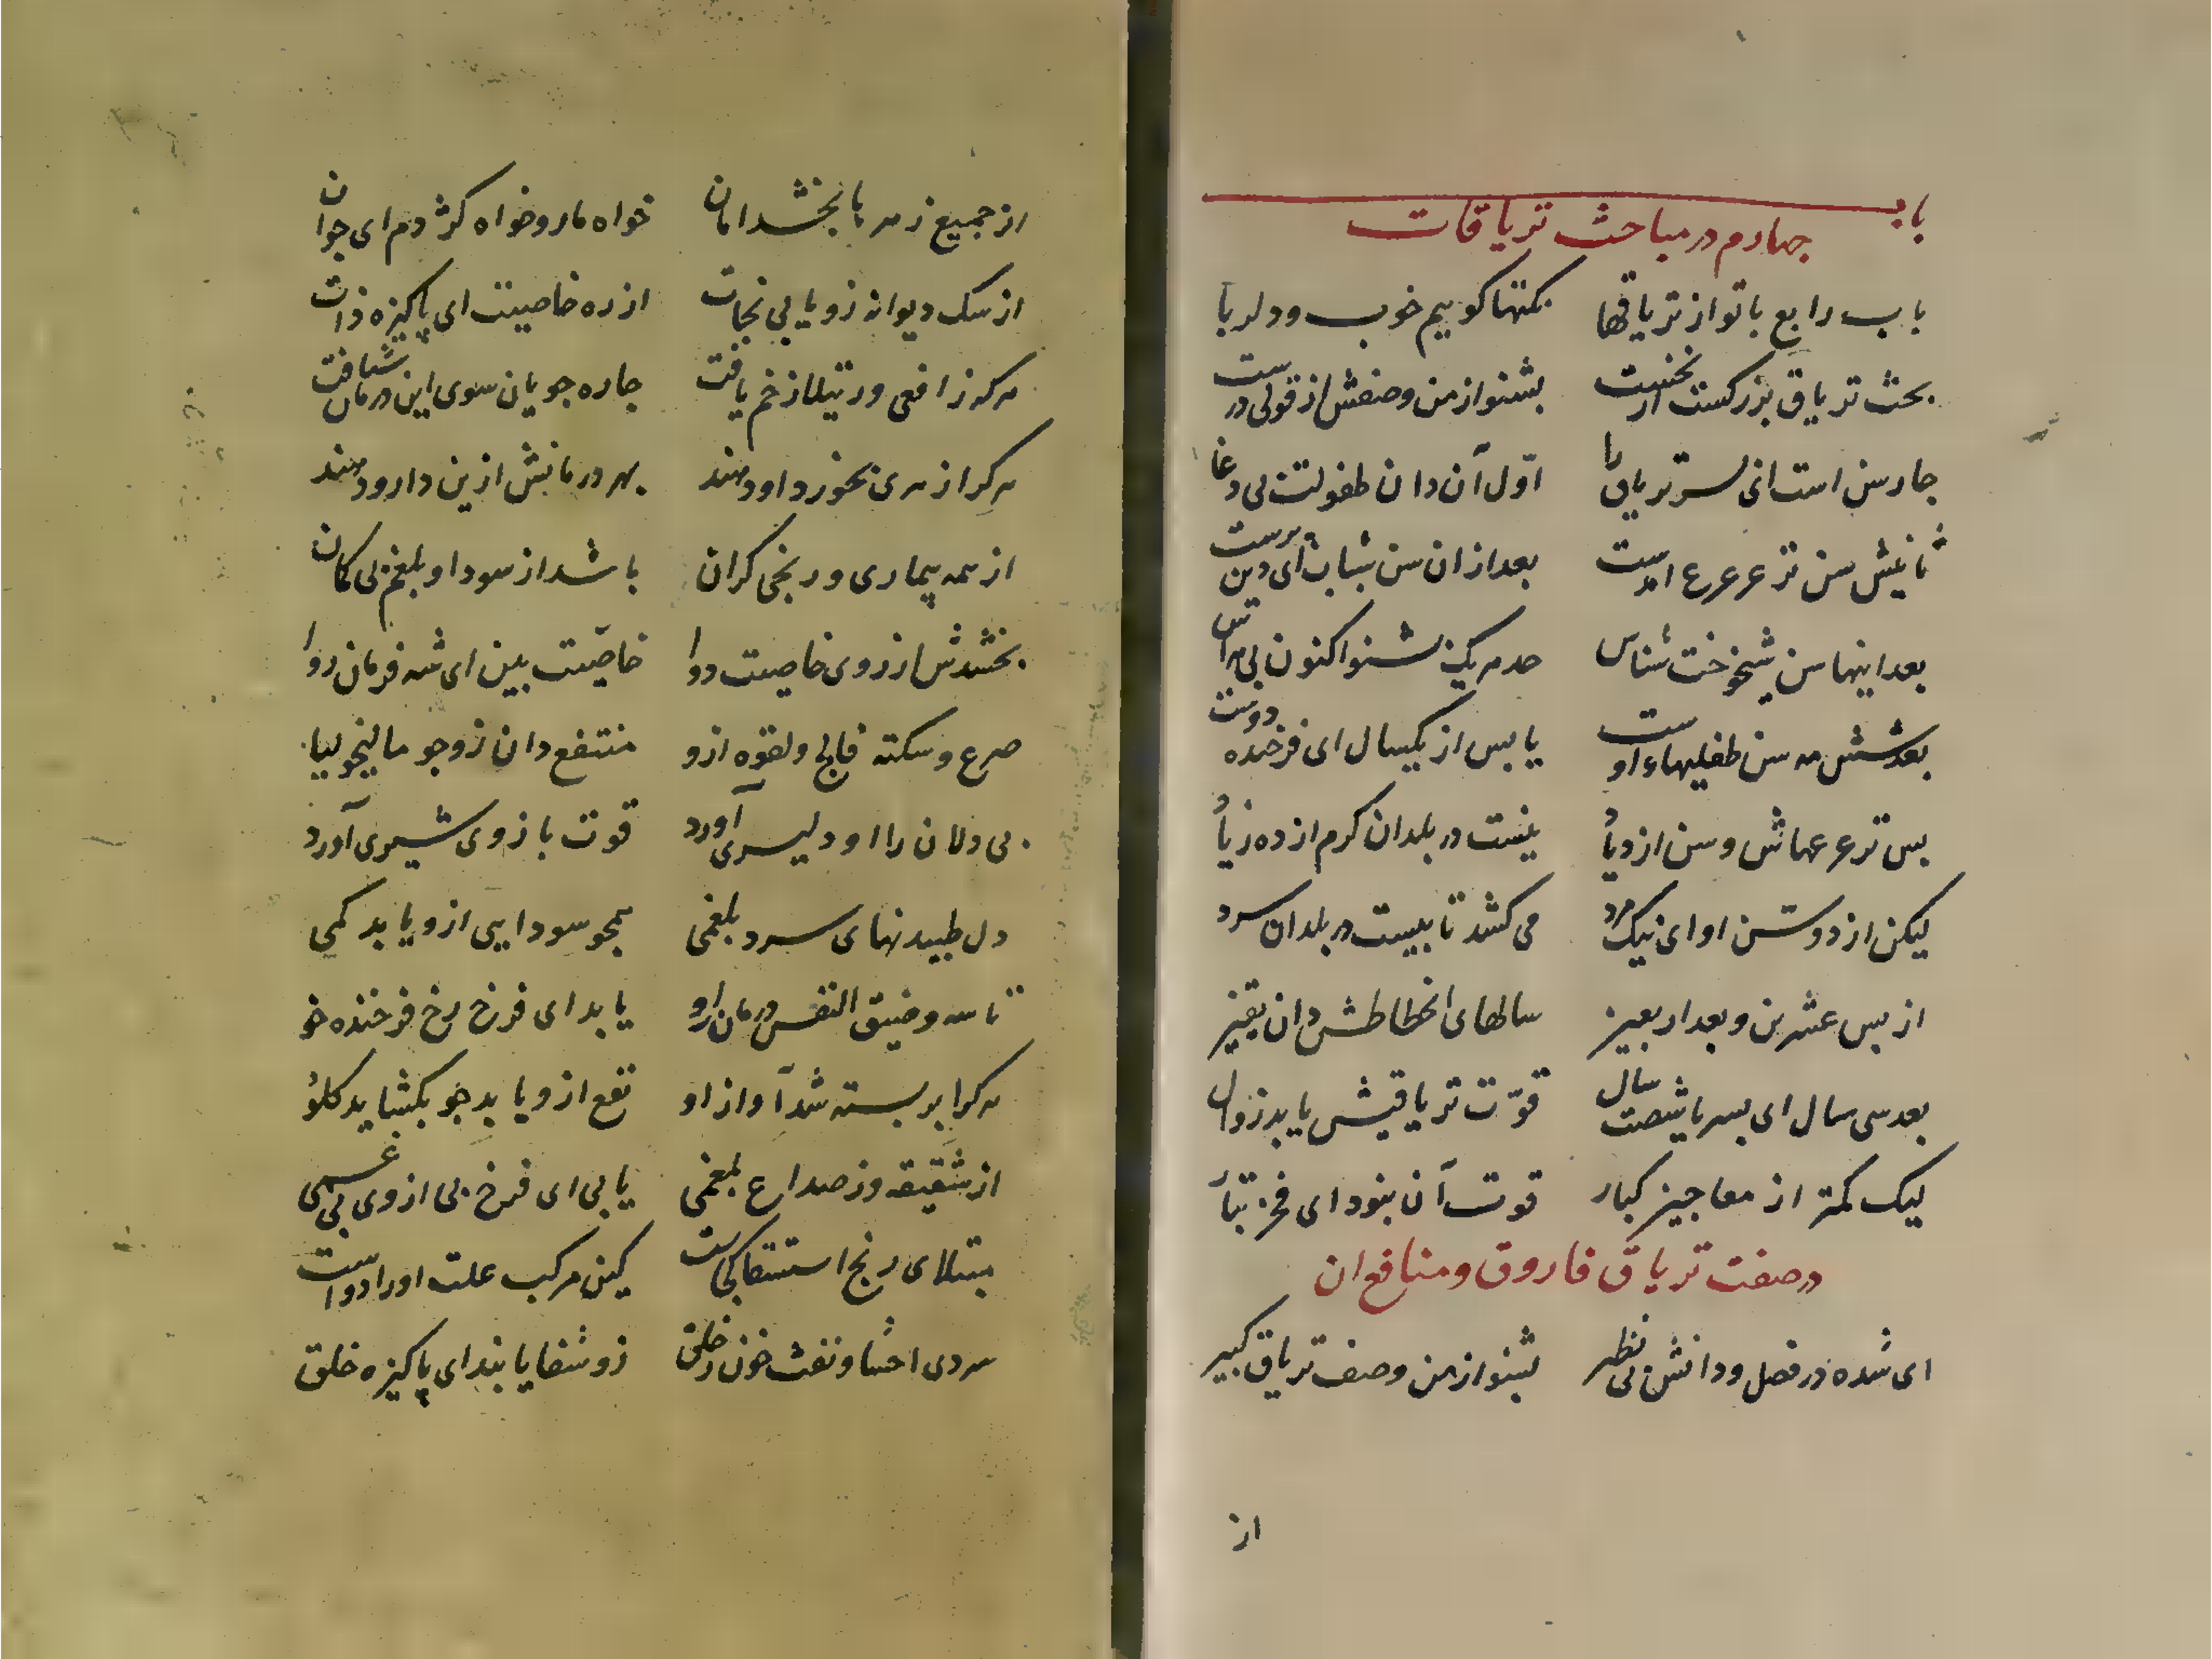 باب
چهارم در مباحث تریاقات
باب رابع با تو از تریاقها نکتها کوییم خوب و دلربا
بحث تریاق بزرکست از نخست بشنو از من وصفش از قولی درست
چارسن است انی پسر تریاق را اوّل آن دان طفولت بی دغا
ثانیش سن ترعرع امدست بعد از ان سن شباب ای دین پرست
بعد اینها سن شیخوخت شناس حد هر یک بشنو اکنون بی هراس
بعد شش مه سن طفلیهاء اوست یا پس از یکسال ای فرخنده دوست
پس ترعرعهاش و سن ازدیاد بیست در بلدان کرم از ده زیاد
لیکن از دو سن او ای نیک مرد می کشد تا بیست در بلدان سرد
از پس عشرین و بعد اربعین سالهای انحطاطش دان یقین
بعد سی سال ای پسر یا شصت سال قوّت تریاقیش یابد زوال
لیک کمتر از معاجین کبار قوت آن نبود ای فخر تبار
در صفت تریاق فاروق و منافع ان
ای شده در فضل و دانش بی نظیر بشنو از من وصف تریاق کبیر
از
از جمیع زهرها بخشد امان خواه مار و خواه کژدم ای جوان
از سک دیوانه زو یابی نجات از ره خاصیت ای پاکیزه ذات
هر که ز افعی و رتیلا زخم یافت چاره جویان سوی این درمان شتافت
هر کرا زهری بخورد او دهند بهر درمانش ازین دارو دهند
از همه بیماری و رنجی کران باشد از سودا و بلغم بی کمان
بخشدش از روی خاصیت دوا خاصیّت بین ای شه فرمان روا
صرع و سکته فالج و لقوه ازو منتفع دان زو جو مالیخولیا
بی دلان را او دلیری آورد قوت بازوی شیری آورد
دل طپیدنهای سرد بلغمی همجو سودایی ازو یابد کمی
تاسه و ضیق النفس درمان ازو یابد ای فرخ رخ فرخنده خو
هر کرا بر بسته شد آواز او نفع ازو یابد جو بکشاید کلو
از شقیقه وز صداع بلغمی یابی ای فرخ پی از وی بی غمی
مبتلای رنج استسقا کجاست کین مرکب علت او را دواست
سردی احشا و نفث خون ز حلق زو شفا یابند ای پاکیزه خلق